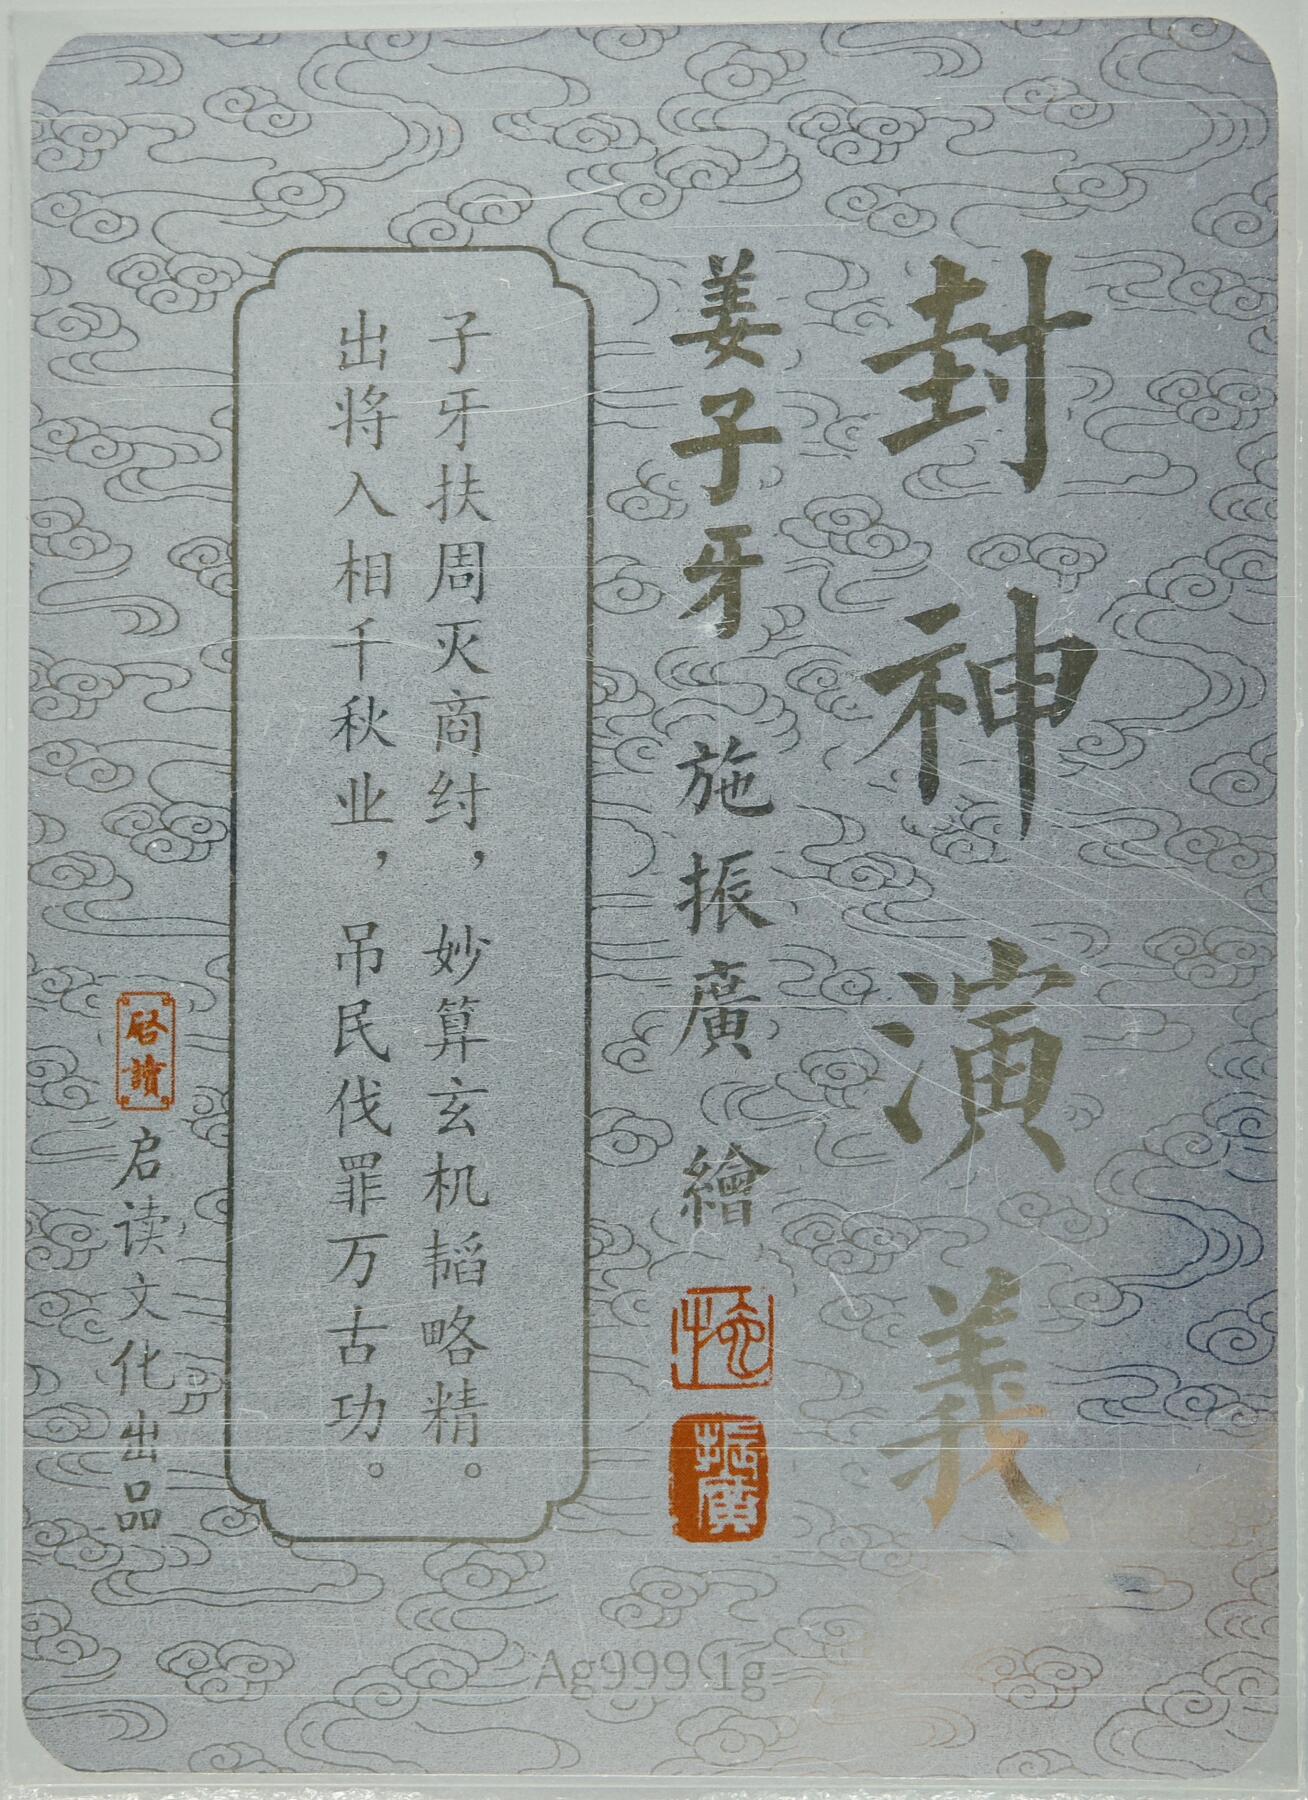 封神演義
姜子牙 施振廣 繪
振廣
子牙扶周灭商纣，妙算玄机韬略精。
出将入相千秋业，吊民伐罪万古功。
啓讀
启读文化出品
Ag999 1g